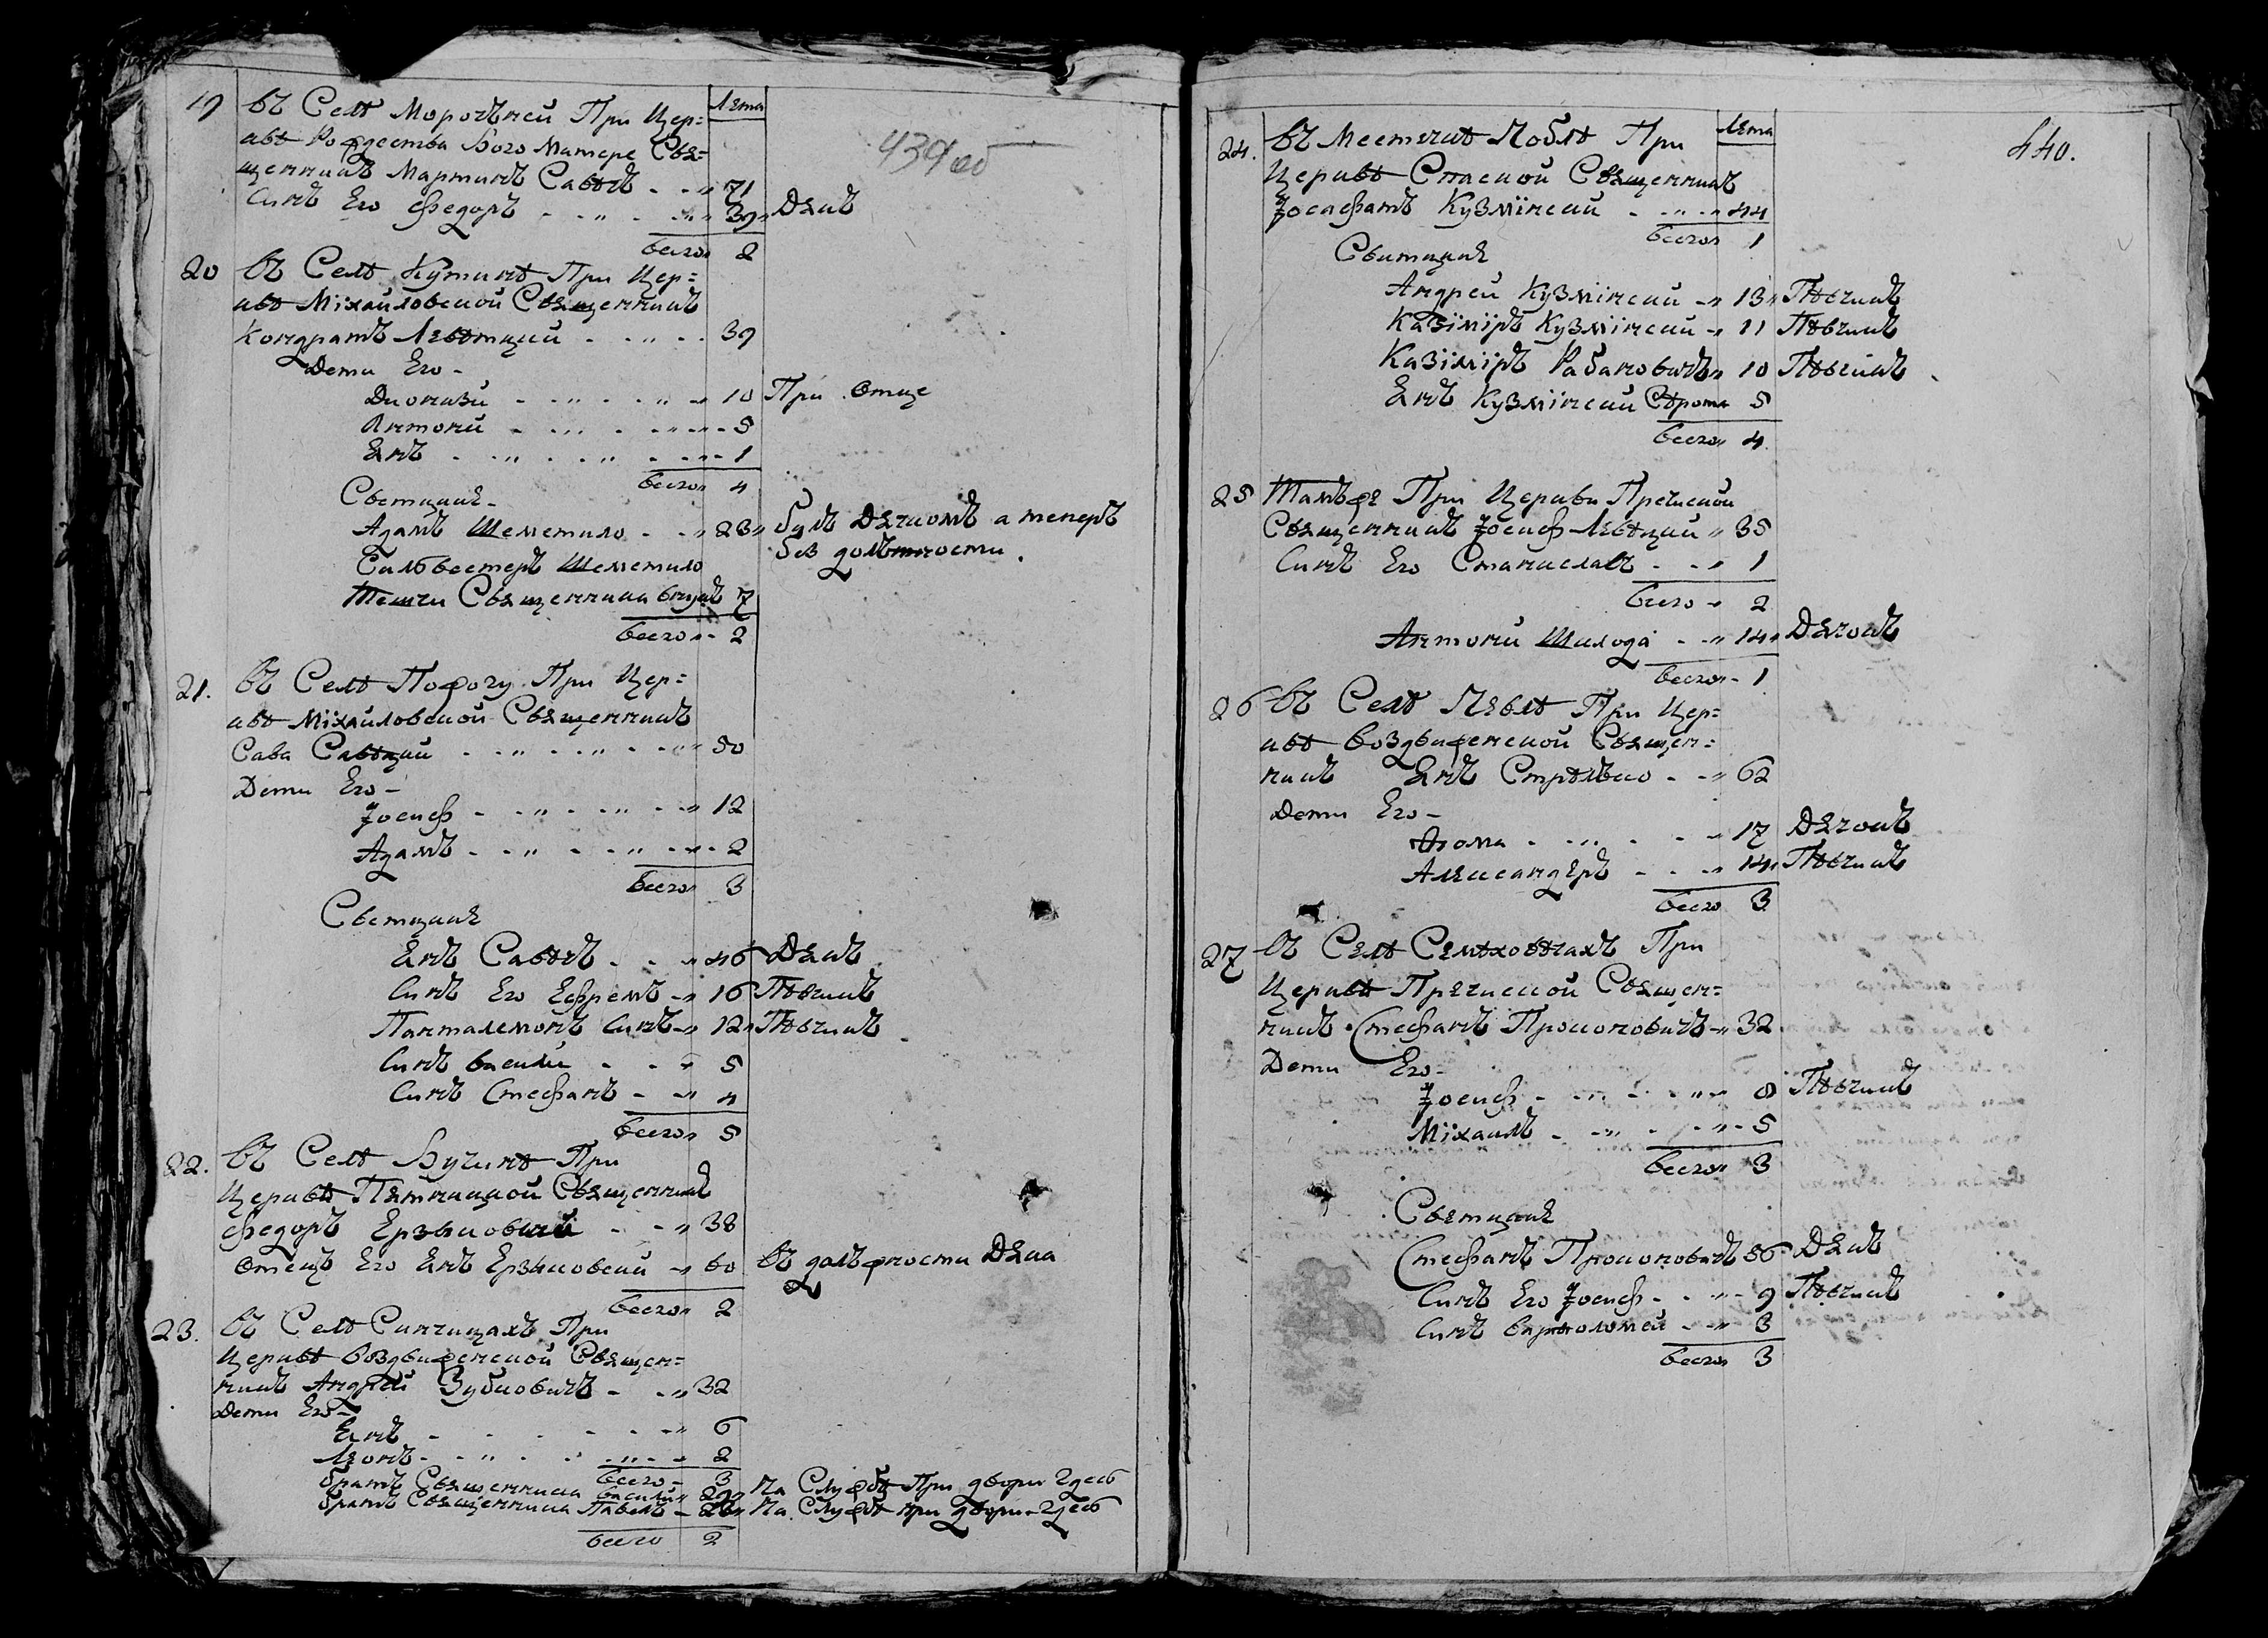 Лета
439 об
19 въ Селѣ Морочѣнои При Цер=
квѣ Рождества Бого Матере Свя=
щенникъ Мартинъ Савѣчъ - - 71
Синъ Его Федоръ - - 39 Дякъ
всего 2
20 въ Селѣ Кутинѣ При Цер=
квѣ Міхайловской Священникъ
Кондратъ Левѣтцкий - - 39
Дети Его -
Дионизи - - 10 При Отце
Антони - - 5
Янъ - - 1
всего 4
Светцкие -
Адамъ Шеметило - - 23 булъ Дячкомъ а теперъ
без долъжности
Сильвестеръ Шеметило
Тещи Священника внукъ 7
всего - 2
21. въ Селѣ Погогу При Цер=
квѣ Міхайловской Священникъ
Сава Савѣцки - - 50
Дети Его -
Іосиф - - 12
Адамъ - - 2
всего 3
Светцкие
Янъ Савѣчъ - - 46 Дякъ
Синъ Его Ефремъ - 16 Пѣвчикъ
Панталемонъ Синъ - 12 Пѣвчикъ
Синъ василий - - 5
Синъ Стефанъ - - 4
всего 5
22. въ Селѣ Бучинѣ При
Церквѣ Пятницкой Священникъ
Федоръ Ерзиковский - - 38
Отецъ Его Янъ Ерзиковски - 60 въ должности Дяка
всего 2
23. въ Селѣ Синчицахъ При
Церквѣ воздвиженской Священ=
никъ Андрей Зубковичъ - - 32
Дети Его -
Янъ - - 6
Леонъ - - 2
всего - 3
братъ Священника василий 29 На Службѣ При двори Здесь
братъ Священника Павелъ - 26 На Службѣ при двори - Здесь
всего 2
Лета
440.
24. въ Местечкѣ Лоблѣ При
Церквѣ Спаской Священникъ
Іосафатъ Кузмінски - - 44
всего 1
Свитцкие
Андрей Кузмінски - 13 Пѣвчикъ
Казіміръ Кузмінски - 11 Пѣвчикъ
Казіміръ Рабановичъ 10 Пѣвчикъ
Янъ Кузмінски Сѣрота 5
всего 4
25 Тамъже При Церкви Пречиской
Священникъ Іосиф Левѣцкий 35
Синъ Его Станиславъ - - 1
всего - 2
Антони Шилода - - 14 Дячокъ
всего - 1
26 въ Селѣ Невлѣ При Цер=
квѣ воздвиженской Священ=
никъ Янъ Стрѣлѣцко - - 62
Дети Его -
Фома - - 17 Дячокъ
Александеръ - - 14 Пѣвчикъ
всего 3
27 въ Селѣ Семѣховѣчахъ При
Церквѣ Пречиской Священ=
никъ Стефанъ Прокоповичъ - 32
Дети Его -
Іосиф - - 8 Пѣвчикъ
Міхаилъ - - 5
всего 3
Светцкие
Стефанъ Прокоповичъ 56 Дякъ
Синъ Его Іосиф - - 9 Пѣвчикъ
Синъ варѳоломей - - 3
всего 3